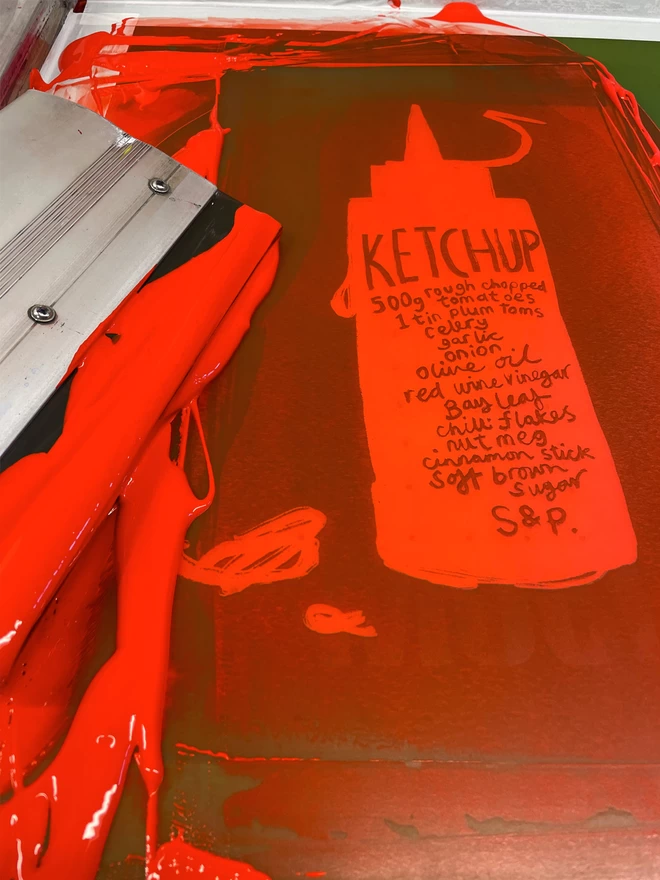 KETCHUP
500g rough chopped
tomatoes
1 tin plum toms
Celery
garlic
onion
olive oil
red wine vinegar
Bay leaf
chilli flakes
nutmeg
cinnamon stick
Soft brown
Sugar
S&P.